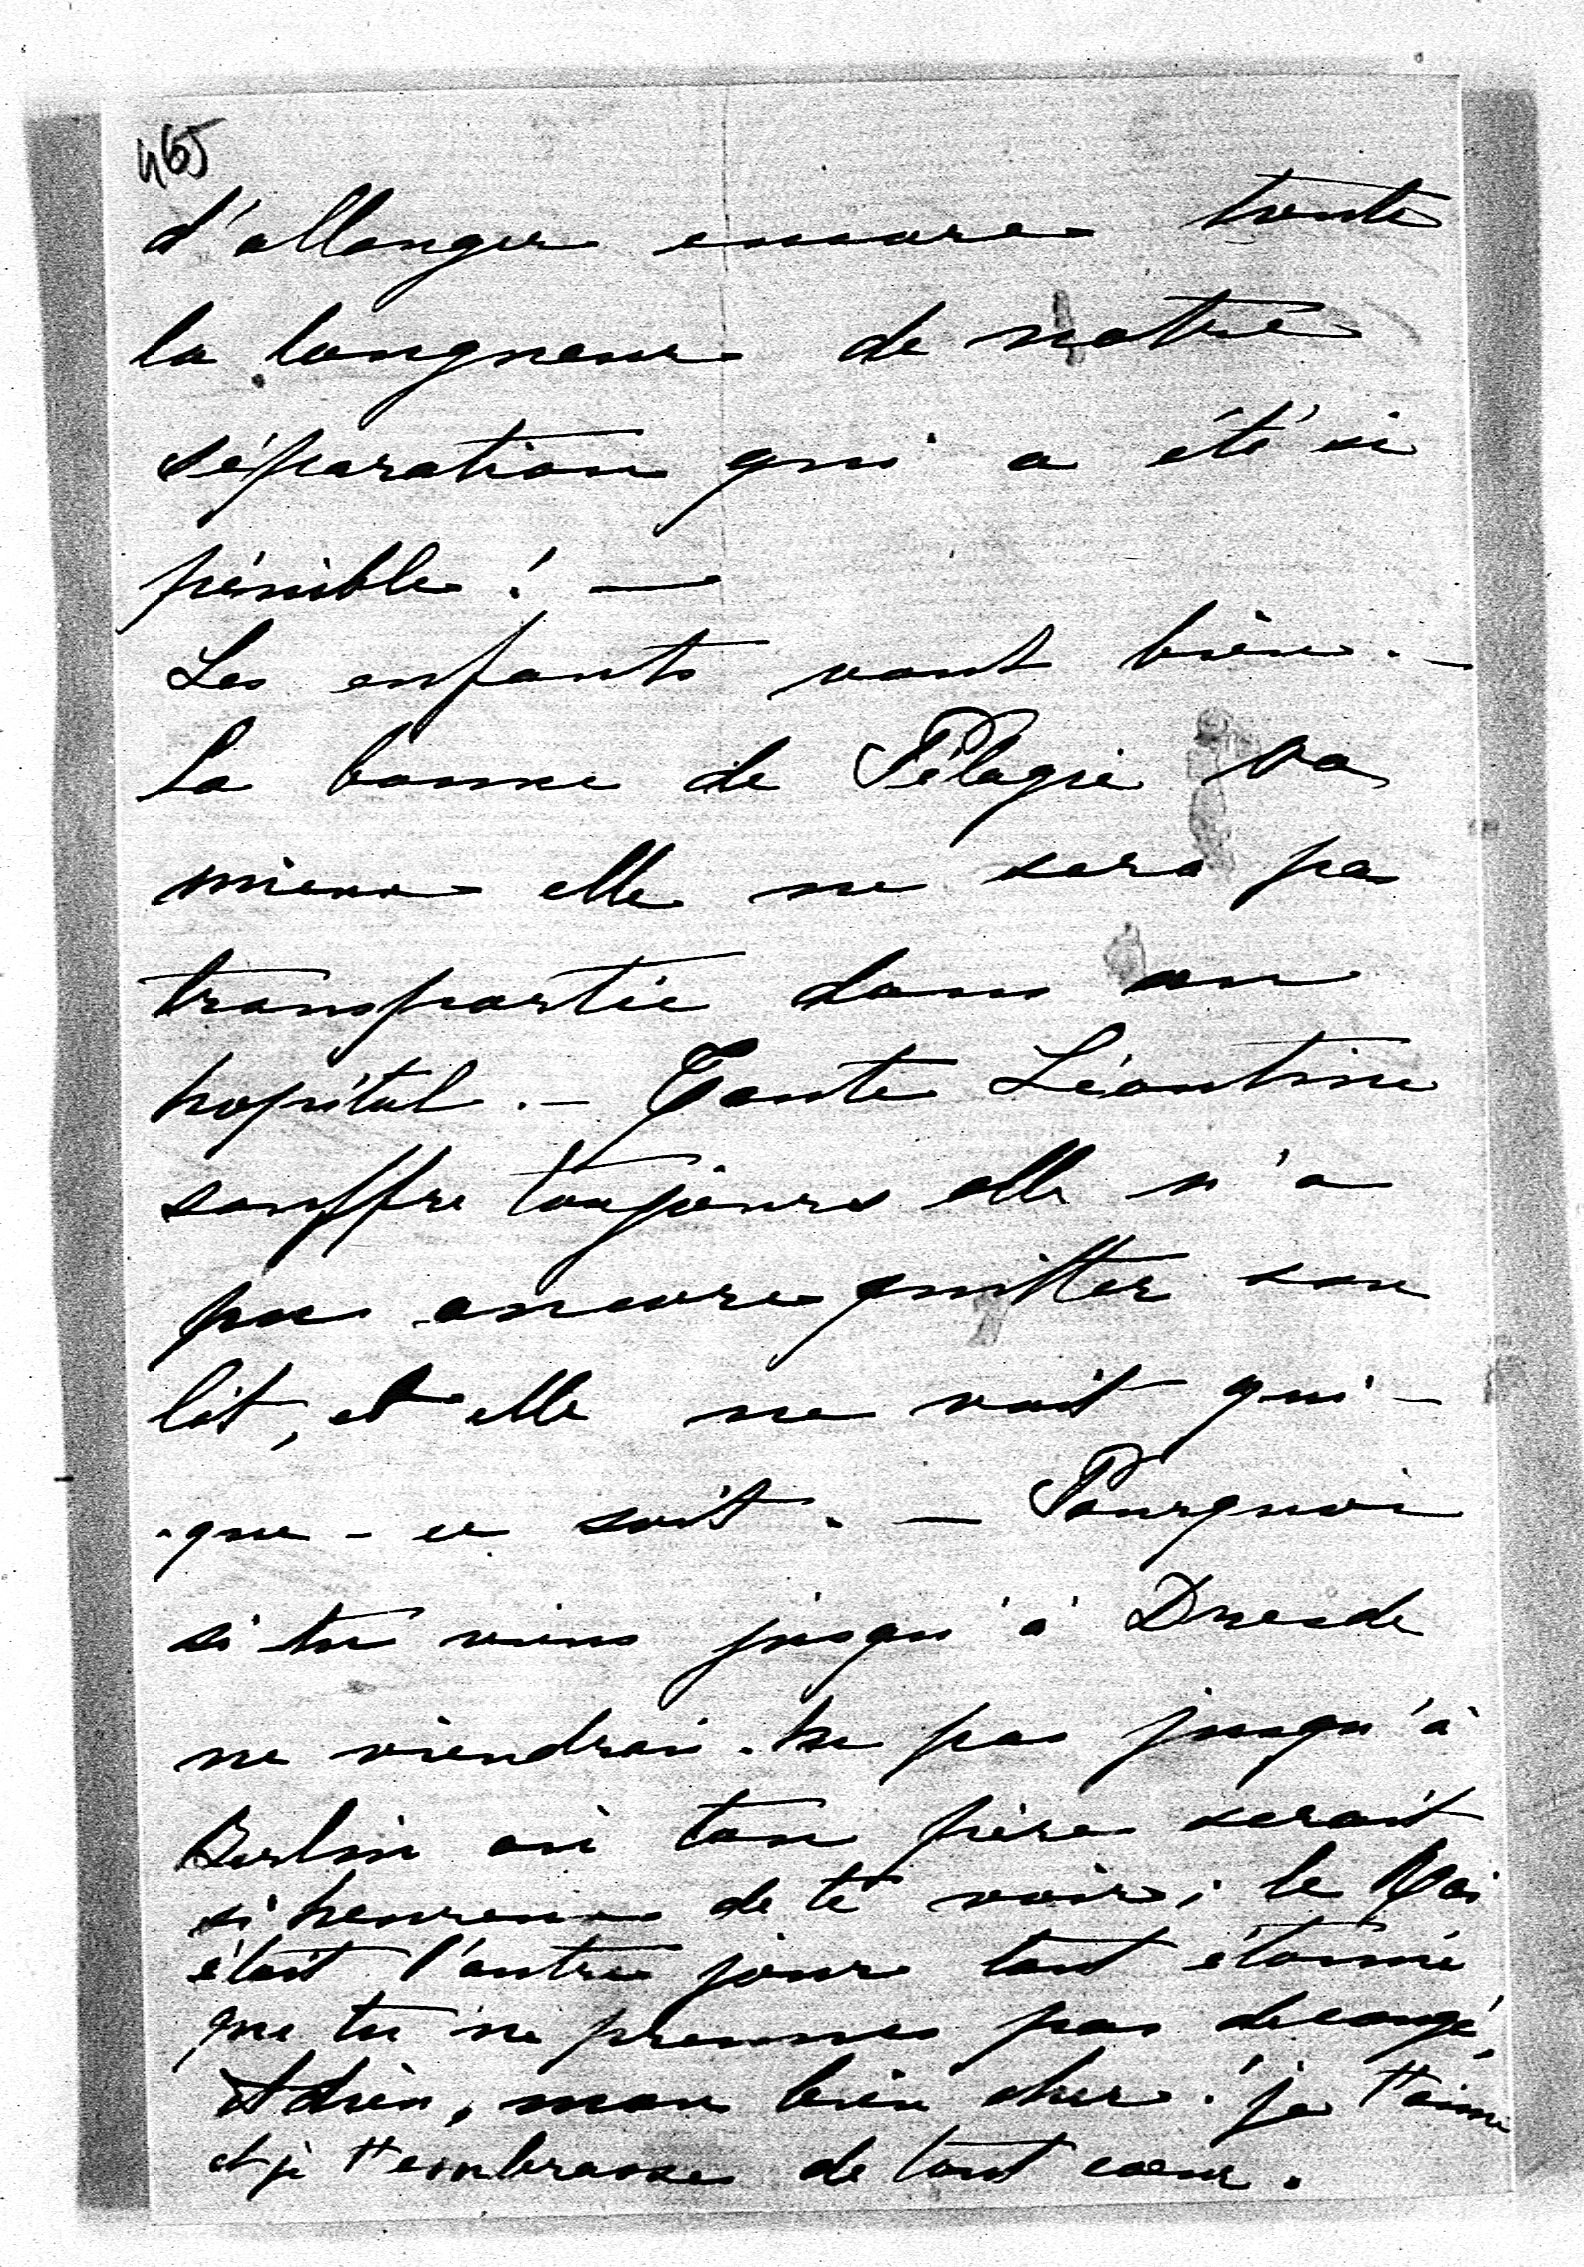 465
d'allonger encore toute
la longueur de notre
séparation qui a été si
pénible! —
Les enfants vont bien. —
La bonne de Pélagie va
mieux elle ne sera pas
transportée dans un
hopital. — Tante Léontine
souffre toujours elle n'a
pas encore quitter son
lit, et elle ne voit qui-
-que-ce soit. — Pourquoi
si tu viens jusqu'à Dresde
ne viendrais-tu pas jusqu'à
Berlin où ton père serait
si heureux de te voir; le Roi
était l'autre jour tout étonné
que tu ne prennes pas de congé,
Adieu, mon bien cher! je t'aime
et je t'embrasse de tout cœur.